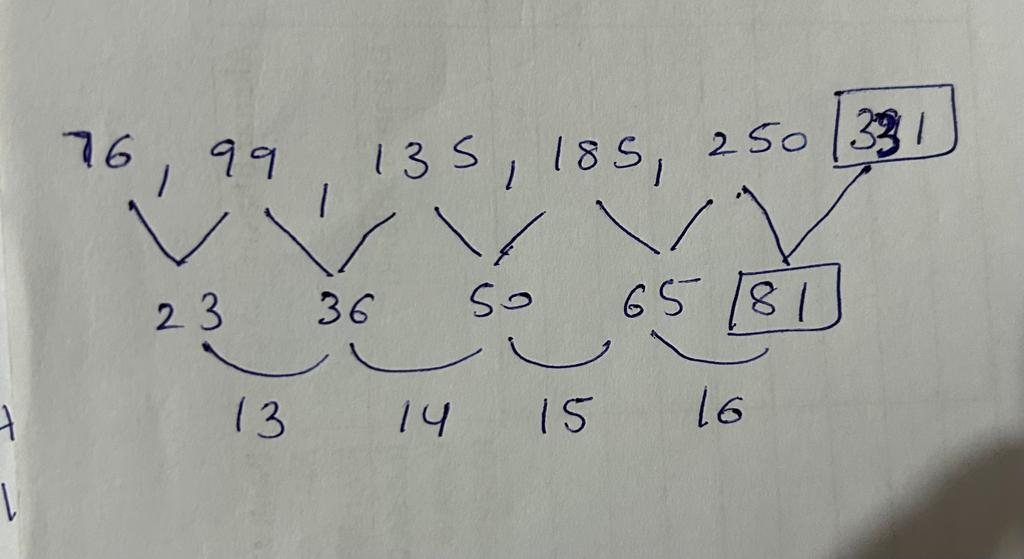 76, 99, 135, 185, 250 331
23 36 50 65 81
13 14 15 16